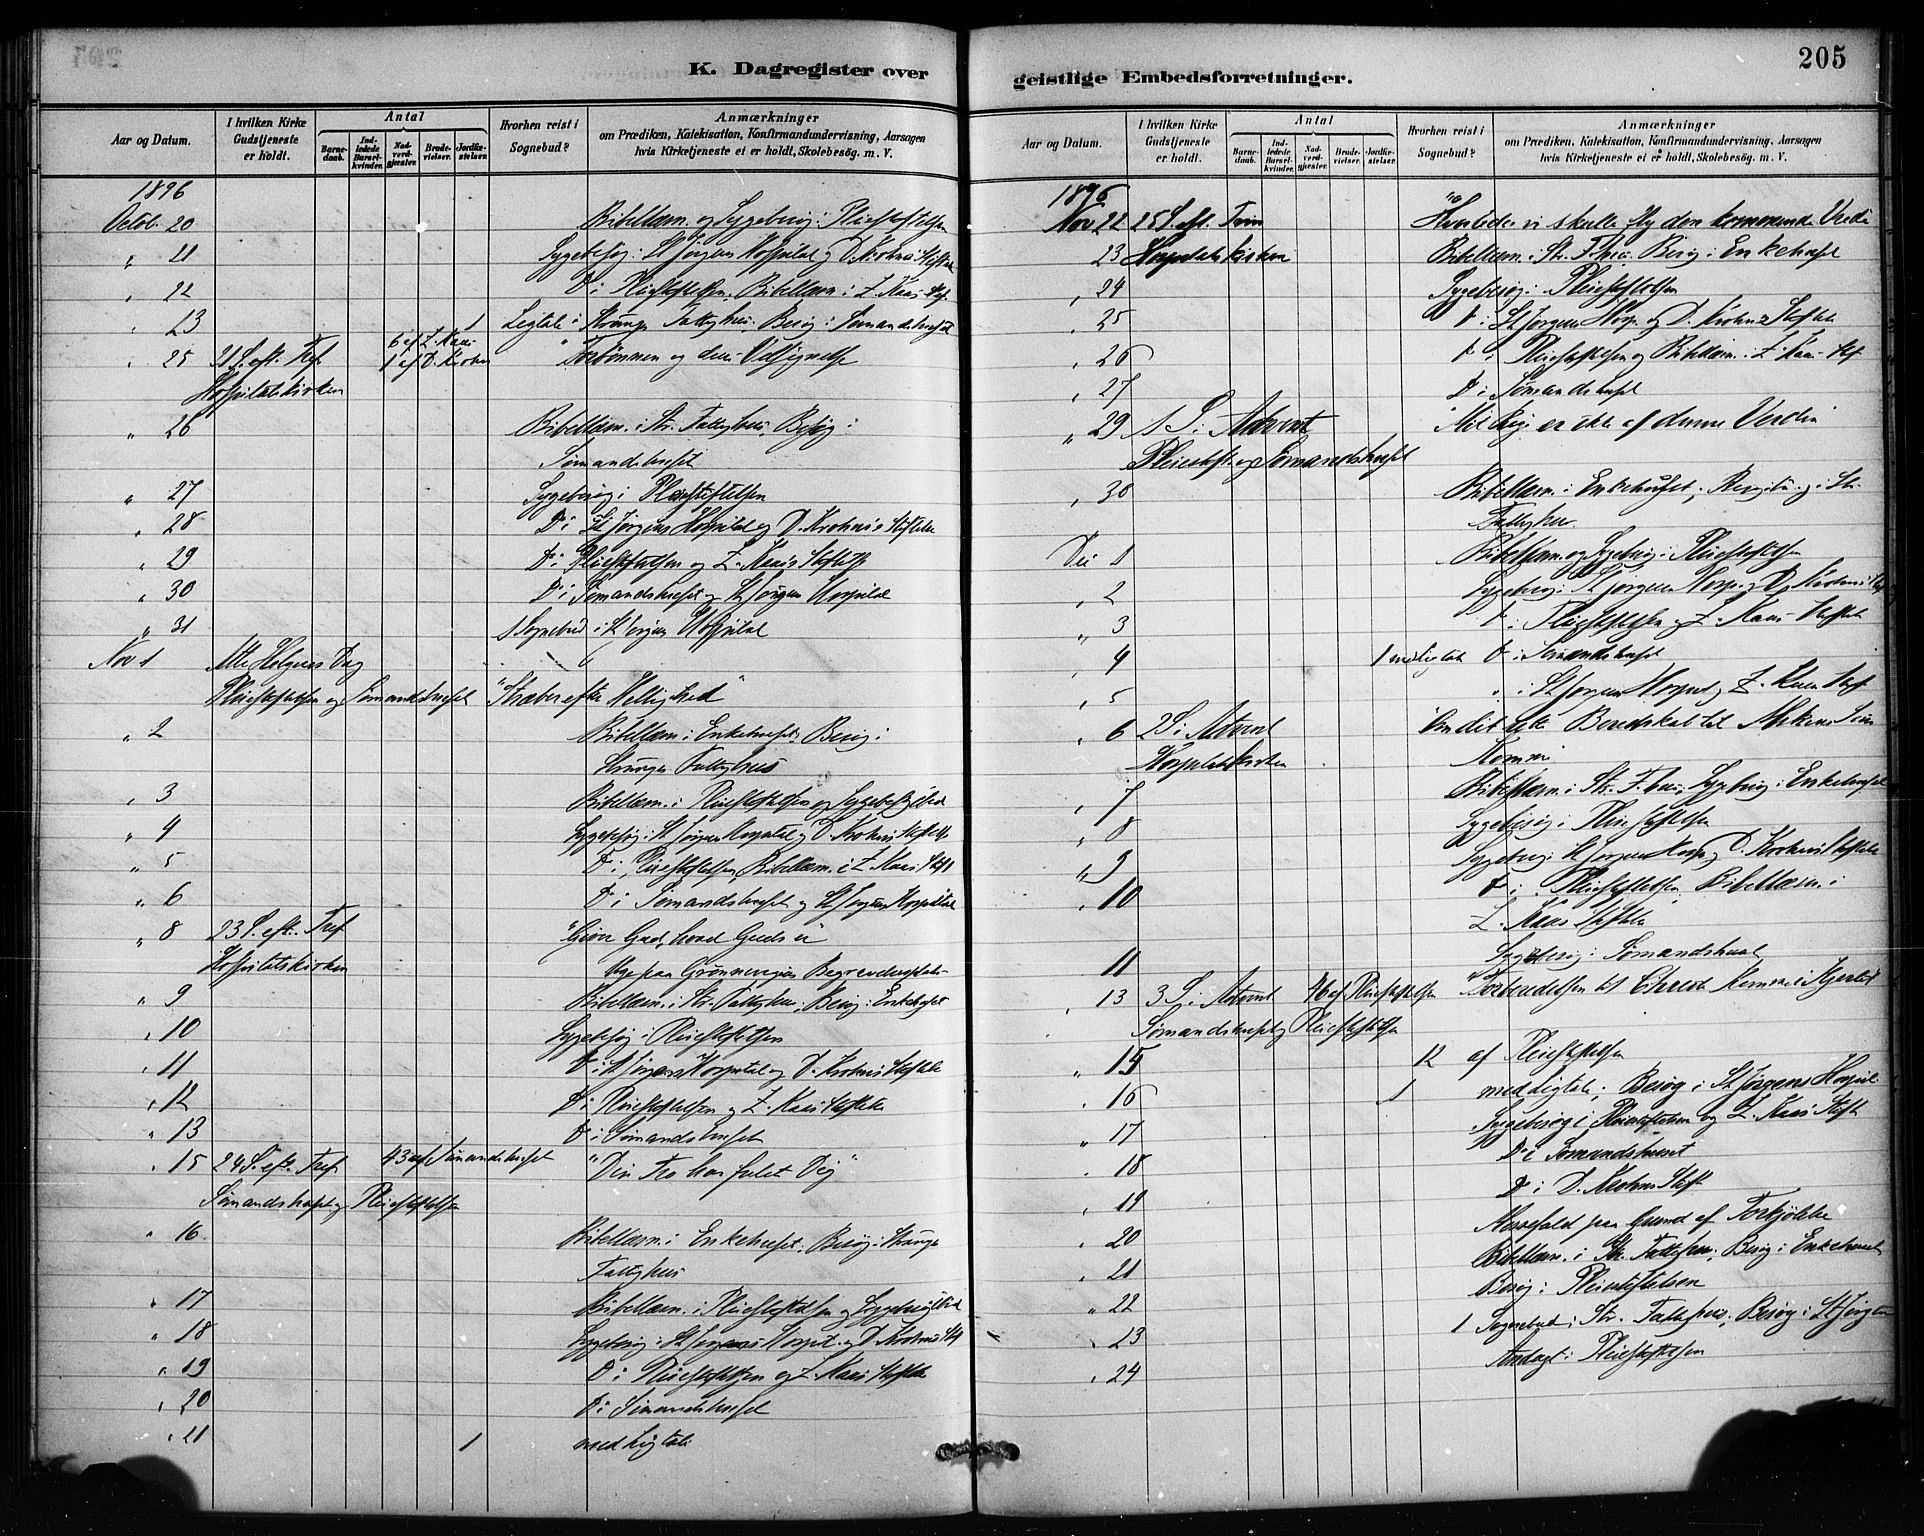 205
K. Dagregister over
Aar og Datum.
I hvilken Kirke Gudstjeneste er holdt.
Antal
Barnedaab.
Indledede Barselkvinder.
Nadverdgjester.
Brudevielser.
Jordfæstelser.
Hvorhen reist i Sognebud?
Anmærkninger
om Prædiken, Katekisation, Konfirmandundervisning, Aarsagen
hvis Kirketjeneste ei er holdt, Skolebesøg. m. V.
1896
Octob. 20 Bibellæsn. og Sygebesøg i Pleiestiftelsen
" 21 Sygebesøg i St Jørgens Hospital og D. Krohns Stiftelse
" 22 Do i Pleiestiftelsen. Bibellæsn. i Z. Kaas Stif.
" 23 1 Ligtale i Stranges Fattighus. Besøg i Sømandshuset
6 af Z. Kaas
" 25 21 S. eft. Tref. 1 af D. Krohn
Hospitalskirken
" 26 Bibellæsn. i Str. Fattighus, Besøg i
Sømandshuset
" 27 Sygebesøg i Pleiestiftelsen
" 28 Do i St Jørgens Hospital og D. Krohns Stiftelse
" 29 Do i Pleiestiftelsen og Z. Kaas Stiftelse
" 30 Do i Sømandshuset og St Jørgens Hospital
" 31 1 Sognebud i St Jørgens Hospital
Nov 1 Alle Helgens Dag
Pleiestiftelsen og Sømandshuset "Stræber efter Hellighed"
" 2 Bibellæsn. i Enkehuset, Besøg i
Stranges Fattighus
" 3 Bibellæsn. i Pleiestiftelsen og Sygebesøg
" 4 Sygebesøg i St Jørgens Hospital og D. Krohns Stiftelse
" 5 Do i Pleiestiftelsen, Bibellæsn. i Z. Kaas Stift
" 6 Do i Sømandshuset og St Jørgens Hospital
" 8 23 S. eft. Tref. "Giver Gud, hvad Guds er
Hospitalskirken
" 9 Bibellæsn. i Str. Fattighus, Besøg i Enkehuset
" 10 Sygebesøg i Pleiestiftelsen
" 11 Do i St Jørgens Hospital og D. Krohns Stiftelse
" 12 Do i Pleiestiftelsen og Z. Kaas Stiftelse
" 13 Do i Sømandshuset
" 15 24 S. eft. Tref. 43 af Sømandshuset "Din Tro har frelst Dig"
Sømandshuset og Pleiestiftelsen
" 16 Bibellæsn. i Enkehuset. Besøg i Stranges
Fattighus
" 17 Bibellæsn. i Pleiestiftelsen og Sygebesøg
" 18 Sygebesøg i St Jørgens Hospit. og D. Krohns Stif
" 19 Do i Pleiestiftelsen og Z. Kaas Stiftelse
" 20 Do i Sømandshuset
" 21 1 med Ligtale
geistlige Embedsforretninger.
Aar og Datum.
I hvilken Kirke Gudstjeneste er holdt.
Antal
Barnedaab.
Indledede Barselkvinder.
Nadverdgjester.
Brudevielser.
Jordfæstelser.
Hvorhen reist i Sognebud?
Anmærkninger
om Prædiken, Katekisation, Konfirmandundervisning, Aarsagen
hvis Kirketjeneste ei er holdt, Skolebesøg. m. V.
1896
Nov 22 25 S. eft. Trin "Hvorledes vi skulle fly den kommende Vrede
23 Hospitalskirken Bibellæsn. i Str. F.hus. Besøg i Enkehuset
" 24 Sygebesøg i Pleiestiftelsen
" 25 Do i St Jørgens Hosp. og D. Krohns Stiftelse
" 26 Do i Pleiestiftelsen og Bibellæsn. i Z. Kaas Stif.
" 27 Do i Sømandshuset
" 29 1 S. i Advent "Mit Rige er ikke af denne Verden
Pleiestift. og Sømandshuset
" 30 Bibellæsn. i Enkehuset, Besøg i Str.
Fattighus
Dec 1 Bibellæsn. og Sygebesøg i Pleiestiftelsen
" 2 Sygebesøg i St Jørgens Hosp. og D. Krohns Stif
" 3 Do i Pleiestiftelsen og Z. Kaas Stiftelse
" 4 1 med Ligtale Do i Sømandshuset
" 5 " i St Jørgens Hospital og Z. Kaas Stif.
" 6 2 S. i Advent
Hospitalskirken Komme
" 7 Bibellæsn. i Str. F.hus, Sygebesøg i Enkehuset
" 8 Sygebesøg i Pleiestiftelsen
" 9 Sygebesøg i St Jørgens Hosp. og D. Krohns Stiftelse
" 10 Do i Pleiestiftelsen, Bibellæsn i
Z. Kaas Stiftelse
11 Sygebesøg i Sømandshuset
" 13 3 S. i Advent 46 af Pleiestiftelsen "Forberedelsen til Christi Komme i Hjertet
Sømandshuset og Pleiestiftelsen
" 15 12 af Pleiestiftelsen
" 16 1 med Ligtale; Besøg i St Jørgens Hospital
" 17 Sygebesøg i Pleiestiftelsen og Z. Kaas Stift
" 18 Do i Sømandshuset
" 19 Do i D. Krohns Stift
" 20 Messefald paa Grund af Forkjølelse
" 21 Bibellæsn. i Str. Fattighus, Besøg i Enkehuset
" 22 Besøg i Pleiestiftelsen
" 23 1 Sognebud i Str. Fattighus, Besøg i St Jørgen
" 24 Andagt i Pleiestiftelsen